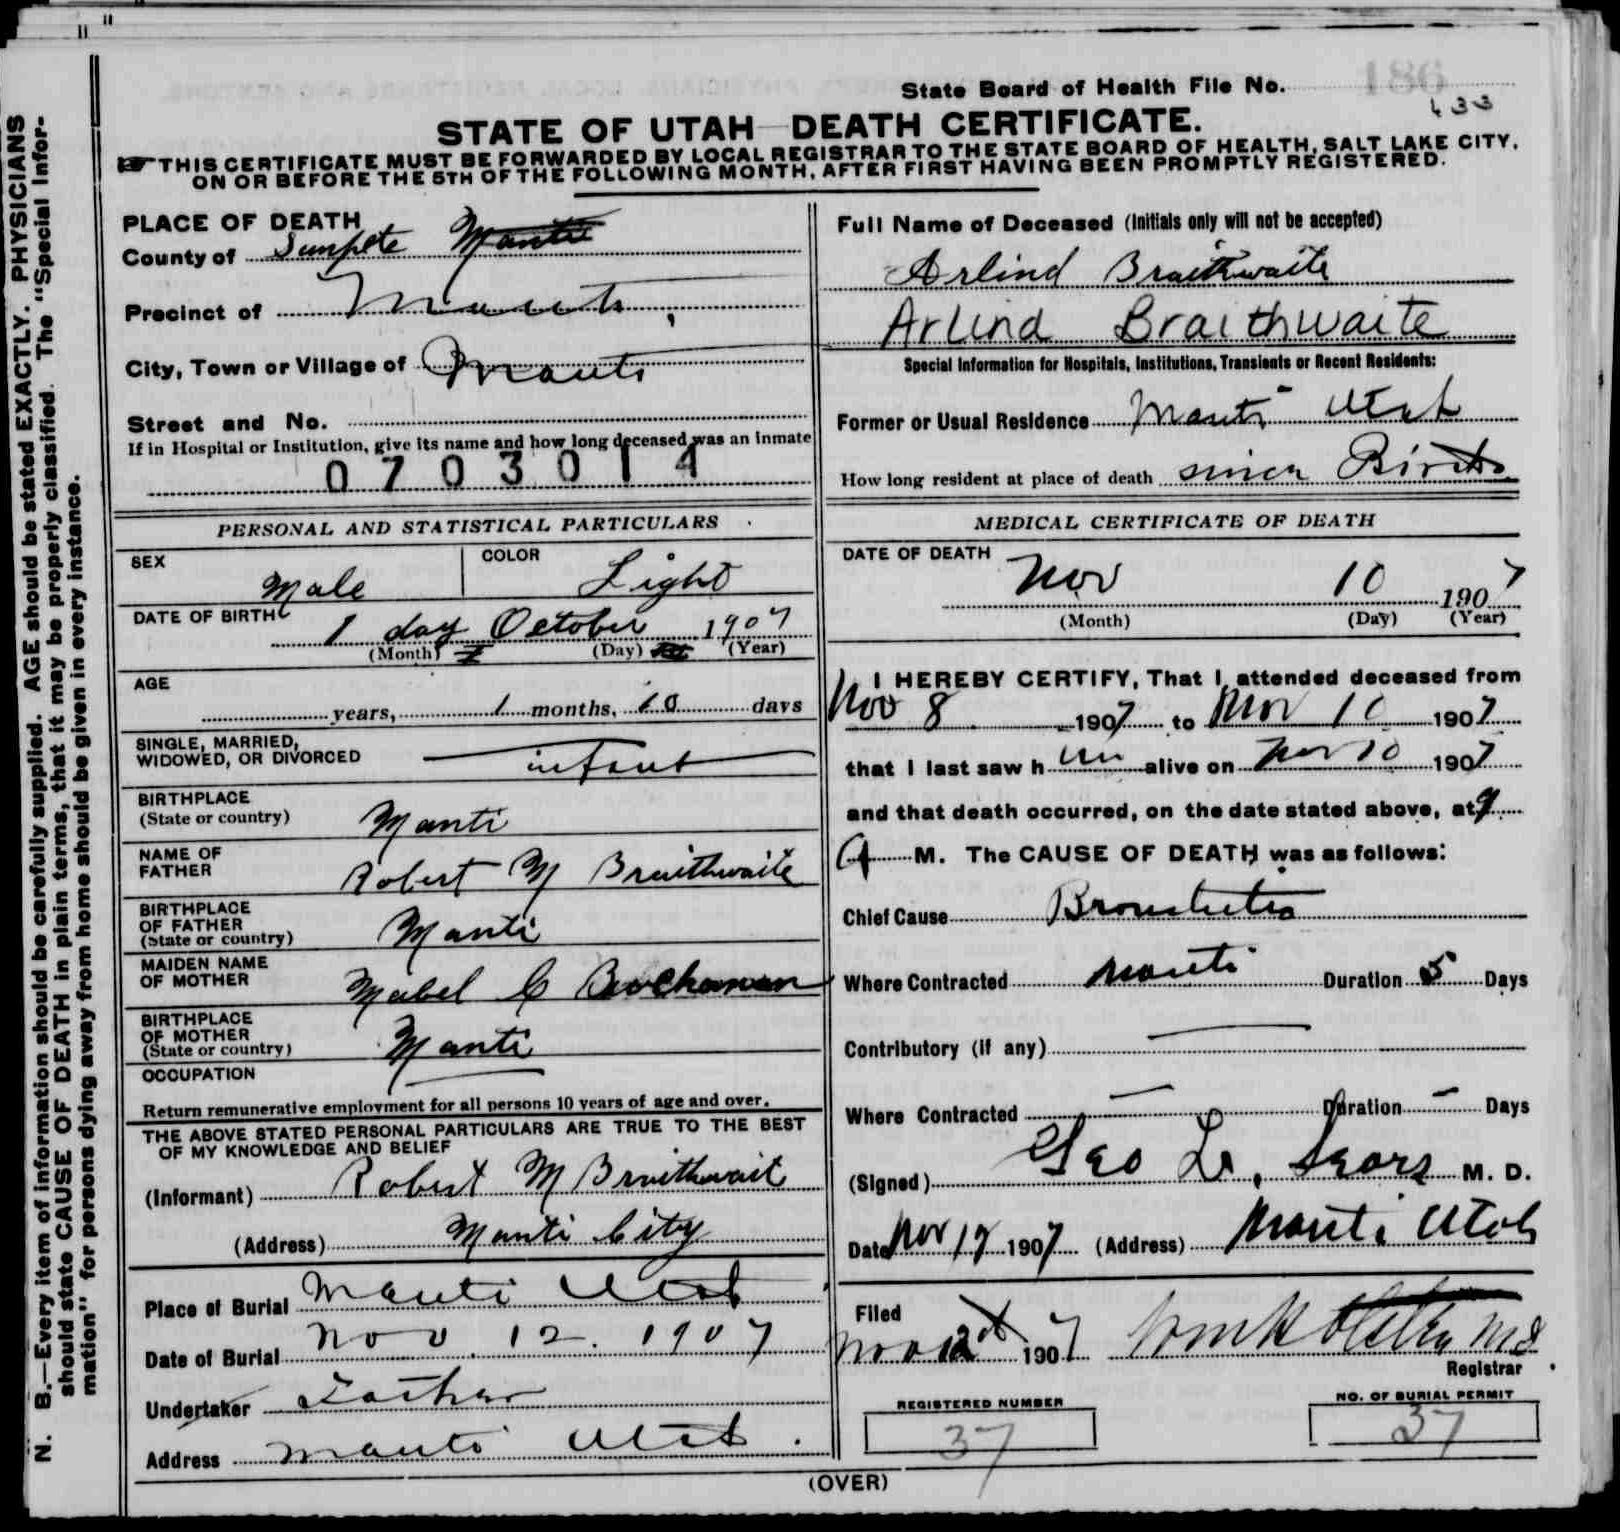 State Board of Health File No.
186
433
STATE OF UTAH—DEATH CERTIFICATE.
THIS CERTIFICATE MUST BE FORWARDED BY LOCAL REGISTRAR TO THE STATE BOARD OF HEALTH, SALT LAKE CITY,
ON OR BEFORE THE 5TH OF THE FOLLOWING MONTH, AFTER FIRST HAVING BEEN PROMPTLY REGISTERED.
N. B.—Every item of information should be carefully supplied. AGE should be stated EXACTLY. PHYSICIANS
should state CAUSE OF DEATH in plain terms, that it may be properly classified. The "Special Infor-
mation" for persons dying away from home should be given in every instance.
PLACE OF DEATH
County of Sanpete Manti
Precinct of Manti,
City, Town or Village of Manti
Street and No.
If in Hospital or Institution, give its name and how long deceased was an inmate
0703014
PERSONAL AND STATISTICAL PARTICULARS
SEX Male
COLOR Light
DATE OF BIRTH 1 day October 1907
(Month) (Day) (Year)
AGE
years, 1 months, 10 days
SINGLE, MARRIED,
WIDOWED, OR DIVORCED infant
BIRTHPLACE
(State or country) Manti
NAME OF
FATHER Robert M Braithwaite
BIRTHPLACE
OF FATHER
(State or country) Manti
MAIDEN NAME
OF MOTHER Mabel C Buchanan
BIRTHPLACE
OF MOTHER
(State or country) Manti
OCCUPATION
Return remunerative employment for all persons 10 years of age and over.
THE ABOVE STATED PERSONAL PARTICULARS ARE TRUE TO THE BEST
OF MY KNOWLEDGE AND BELIEF
(Informant) Robert M Braithwait
(Address) Manti City
Place of Burial Manti Utah
Date of Burial Nov. 12. 1907
Undertaker Father
Address Manti Utah.
Full Name of Deceased (Initials only will not be accepted)
Arlind Braithwaite
Arlind Braithwaite
Special Information for Hospitals, Institutions, Transients or Recent Residents:
Former or Usual Residence Manti Utah
How long resident at place of death since Birth
MEDICAL CERTIFICATE OF DEATH
DATE OF DEATH
Nov 10 1907
(Month) (Day) (Year)
I HEREBY CERTIFY, That I attended deceased from
Nov 8 1907 to Nov 10 1907
that I last saw him alive on Nov 10 1907
and that death occurred, on the date stated above, at 9
A M. The CAUSE OF DEATH was as follows:
Chief Cause Bronchitis
Where Contracted Manti Duration 5 Days
Contributory (if any)
Where Contracted Duration Days
(Signed) Geo L, Sears M. D.
Date Nov 12 1907 (Address) Manti Utah
Filed
Nov 12 1907
Registrar
REGISTERED NUMBER
37
NO. OF BURIAL PERMIT
37
(OVER)